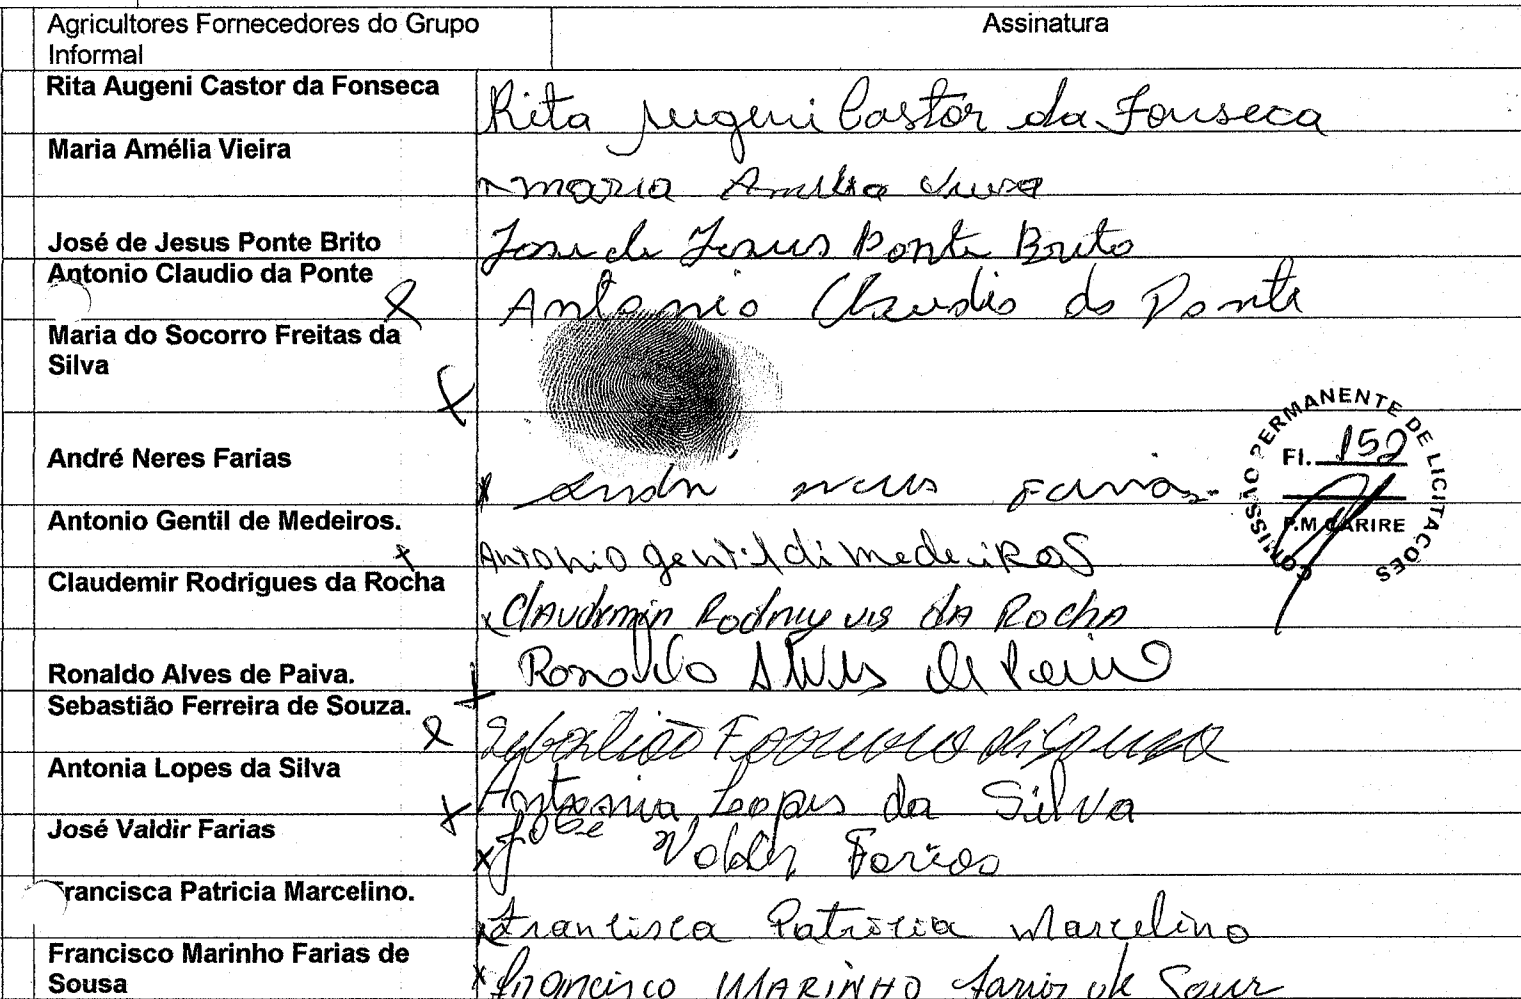 Agricultores Fornecedores do Grupo Assinatura
Informal
Rita Augeni Castor da Fonseca
Rita Augeni Castor da Fonseca
Maria Amélia Vieira
maria Amelia
José de Jesus Ponte Brito
Jose de Jesus Ponte Brito
Antonio Claudio da Ponte
Antonio Claudio da Ponte
Maria do Socorro Freitas da
Silva
André Neres Farias
André neres Farias
Antonio Gentil de Medeiros.
Antonio gentil di medeiRos
Claudemir Rodrigues da Rocha
Claudemir Rodrigues dA RochA
Ronaldo Alves de Paiva.
Ronaldo Alves de Paiva
Sebastião Ferreira de Souza.
Sebastião Ferreira de Souza
Antonia Lopes da Silva
Antonia Lopes da Silva
José Valdir Farias
José Valdir Farias
Francisca Patricia Marcelino.
Francisca Patricia Marcelino
Francisco Marinho Farias de
Sousa
Francisco MARINHO farias de
COMISSÃO PERMANENTE DE LICITACOES
Fl. 152
P.M CARIRE